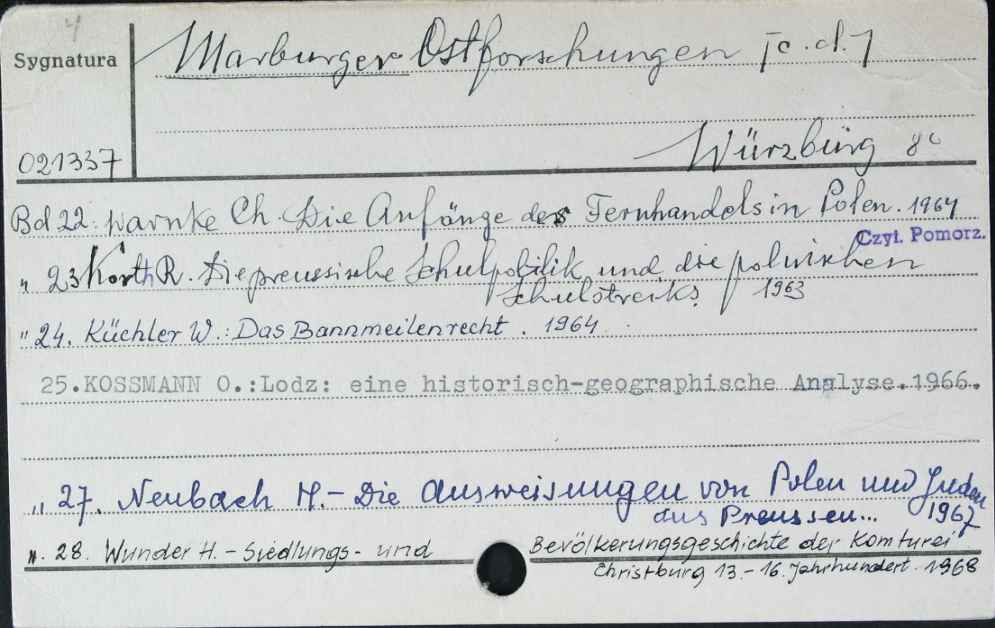 4
Sygnatura
Marburger Ostforschungen [c.d.]
021337
Würzburg 8°
Bd 22: Warnke Ch. Die Anfänge des Fernhandels in Polen. 1964
Czyt. Pomorz.
" 23 Korth R. Die preussische Schulpolitik und die polnischen
Schulstreiks. 1963
" 24. Küchler W.: Das Bannmeilenrecht. 1964
25.KOSSMANN O.:Lodz: eine historisch-geographische Analyse.1966.
" 27. Neubach H. - Die Ausweisungen von Polen und Juden
aus Preussen... 1967
". 28. Wunder H. - Siedlungs- und Bevölkerungsgeschichte der Komturei
Christburg 13.-16. Jahrhundert. 1968